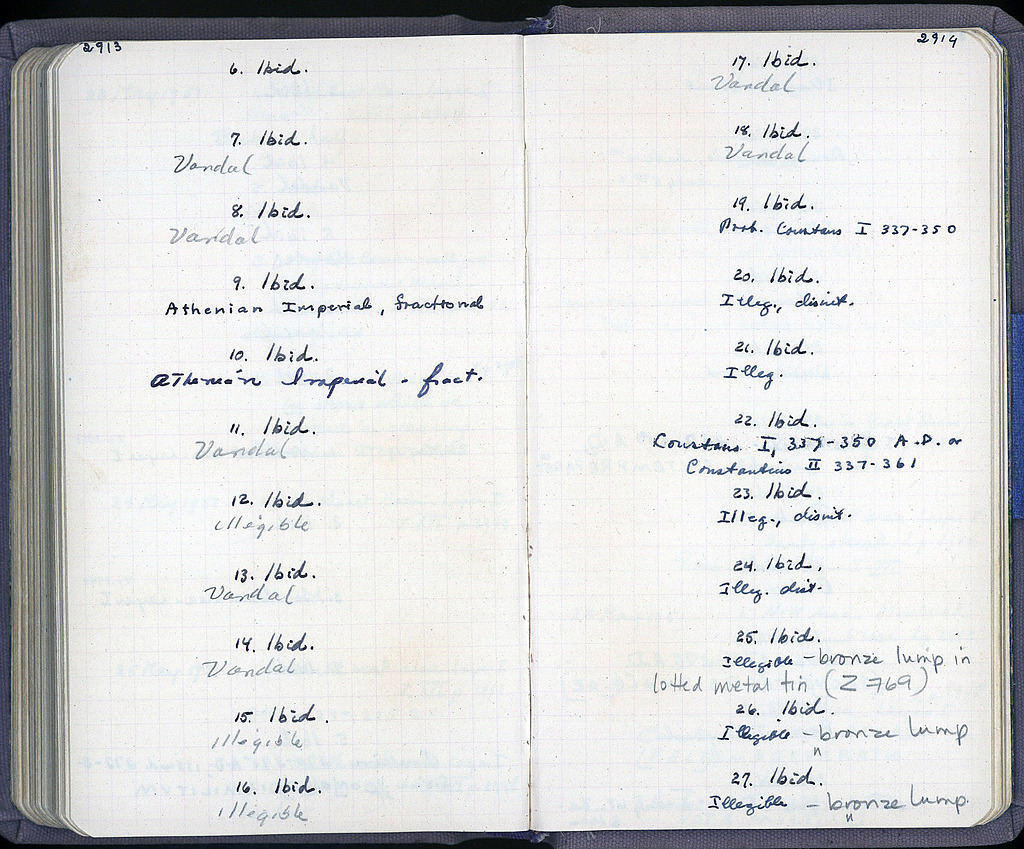 2913
6. Ibid.
7. Ibid.
Vandal
8. Ibid.
Vandal
9. Ibid.
Athenian Imperial, fractional
10. Ibid.
Athenian Imperial - fract.
11. Ibid.
Vandal
12. Ibid.
illegible
13. Ibid.
Vandal
14. Ibid.
Vandal
15. Ibid.
illegible
16. Ibid.
illegible
2914
17. Ibid.
Vandal
18. Ibid.
Vandal
19. Ibid.
Prob. Constans I 337-350
20. Ibid.
Illeg., disint.
21. Ibid.
Illeg.
22. Ibid.
Constans I, 337-350 A.D. or
Constantius II 337-361
23. Ibid.
Illeg., disint.
24. Ibid.
Illeg. dist.
25. Ibid.
Illegible - bronze lump in
lotted metal tin (Z 769)
26. Ibid.
Illegible - bronze lump
27. Ibid.
Illegible - bronze lump